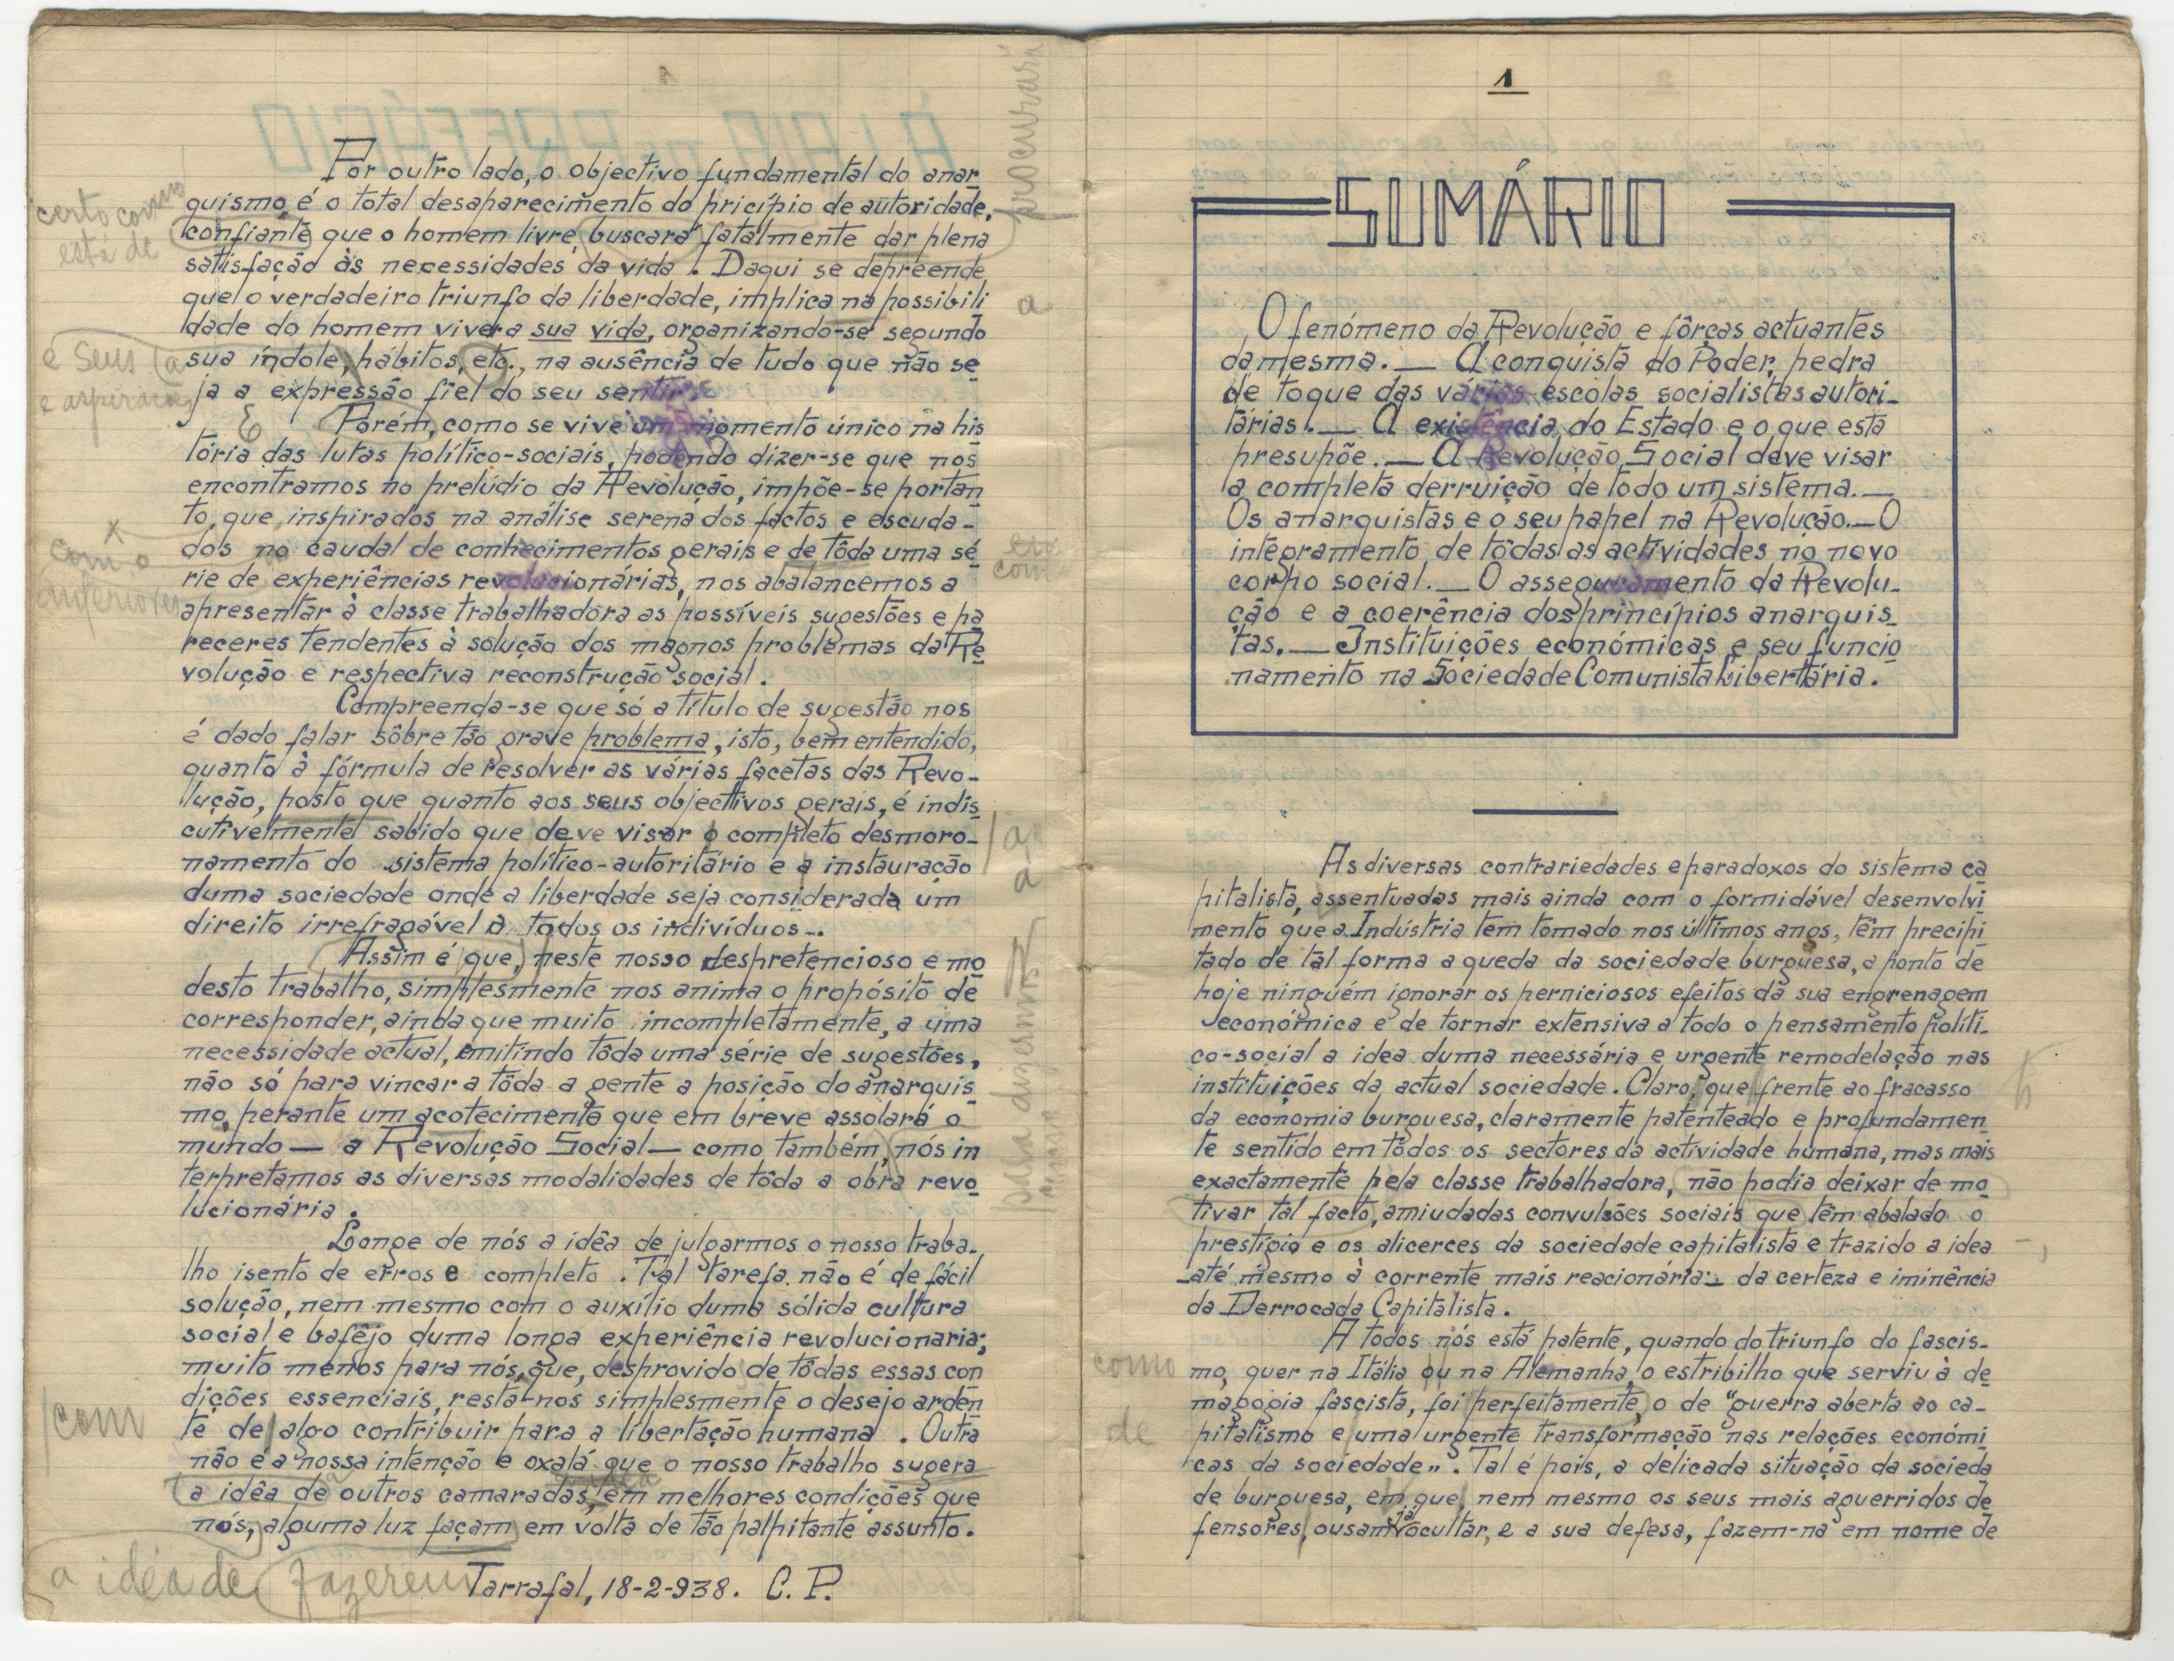 Por outro lado, o objectivo fundamental do anar
quismo é o total desaparecimento do pricípio de autoridade,
confiante que o homem livre, buscará fatalmente dar plena
satisfação às necessidades da vida. Daqui se depreende,
que o verdadeiro triunfo da liberdade, implica na possibili
dade do homem viver a sua vida, organizando-se segundo
sua índole, hábitos, etc., na ausência de tudo que não se
ja a expressão fiel do seu sentir.
Porém, como se vive um momento único na his
tória das lutas político-sociais, podendo dizer-se que nos
encontramos no prelúdio da Revolução, impõe-se portan
to, que, inspirados na análise serena dos factos e escuda-
dos no caudal de conhecimentos gerais e de tôda uma sé
rie de experiências revolucionárias, nos abalancemos a
apresentar à classe trabalhadora as possíveis sugestões e pa
receres tendentes à solução dos magnos problemas da Re
volução e respectiva reconstrução social.
Compreenda-se que só a título de sugestão nos
é dado falar sôbre tão grave problema, isto, bem entendido,
quanto à fórmula de resolver as várias facetas das Revo-
lução, posto que quanto aos seus objectivos gerais, é indis
cutivelmente sabido que deve visar o completo desmoro-
namento do sistema político-autoritário e a instauração
duma sociedade onde a liberdade seja considerada um
direito irrefragável a todos os indivíduos..
Assim é que, neste nosso despretencioso e mo
desto trabalho, simplesmente nos anima o propósito de
corresponder, ainda que muito incompletamente, a uma
necessidade actual, emitindo tôda uma série de sugestões,
não só para vincar a tôda a gente a posição do anarquis
mo, perante um acotecimento que em breve assolará o
mundo — a Revolução Social — como também, nós in
terpretamos as diversas modalidades de tôda a obra revo
lucionária.
Longe de nós a idêa de julgarmos o nosso traba-
lho isento de erros e completo. Tal tarefa não é de fácil
solução, nem mesmo com o auxílio duma sólida cultura
social e bafêjo duma longa experiência revolucionaria;
muito menos para nós, que, desprovido de tôdas essas con
dições essenciais, resta-nos simplesmente o desejo arden
te de algo contribuir para a libertação humana. Outra
não é a nossa intenção e oxalá que o nosso trabalho sugera
a idêa de outros camaradas, em melhores condições que
nós, alguma luz façam em volta de tão palpitante assunto.
Tarrafal, 18-2-938. C. P.
certo como
está de
procurará
a
e seus
E
com o
com
a
a
com
a idéa de
fazerem
1
SUMÁRIO
O fenómeno da Revolução e fôrças actuantes
da mesma. — A conquista do Poder, pedra
de toque das várias escolas socialistas autori-
tárias. — A existência do Estado e o que esta
presupõe. — A Revolução Social deve visar
a completa derruição de todo um sistema. —
Os anarquistas e o seu papel na Revolução. — O
integramento de tôdas as actividades no novo
corpo social. — O asseguramento da Revolu-
ção e a coerência dos princípios anarquis
tas. — Instituições económicas e seu funcio
namento na Sociedade Comunista Libertária.
As diversas contrariedades e paradoxos do sistema ca
pitalista, assentuadas mais ainda com o formidável desenvolvi
mento que a Indústria tem tomado nos últimos anos, têm precipi
tado de tal forma a queda da sociedade burguesa, a ponto de
hoje ninguém ignorar os perniciosos efeitos da sua engrenagem
económica e de tornar extensiva a todo o pensamento políti-
co-social a idea duma necessária e urgente remodelação nas
instituições da actual sociedade. Claro, que frente ao fracasso
da economia burguesa, claramente patenteado e profundamen
te sentido em tôdos os sectores da actividade humana, mas mais
exactamente pela classe trabalhadora, não podia deixar de mo
tivar tal facto, amiudadas convulsões sociais que têm abalado o
prestígio e os alicerces da sociedade capitalista e trazido a idea
-até mesmo à corrente mais reacionária- da certeza e iminência
da Derrocada Capitalista.
A todos nós está patente, quando do triunfo do fascis-
mo, quer na Itália ou na Alemanha, o estribilho que serviu à de
magogia fascista, foi perfeitamente, o de "guerra aberta ao ca-
pitalismo e uma urgente transformação nas relações económi
cas da sociedade". Tal é pois, a delicada situação da socieda
de burguesa, em que, nem mesmo os seus mais aguerridos de
fensores, ousam já ocultar, e a sua defesa, fazem-na em nome de
como
de